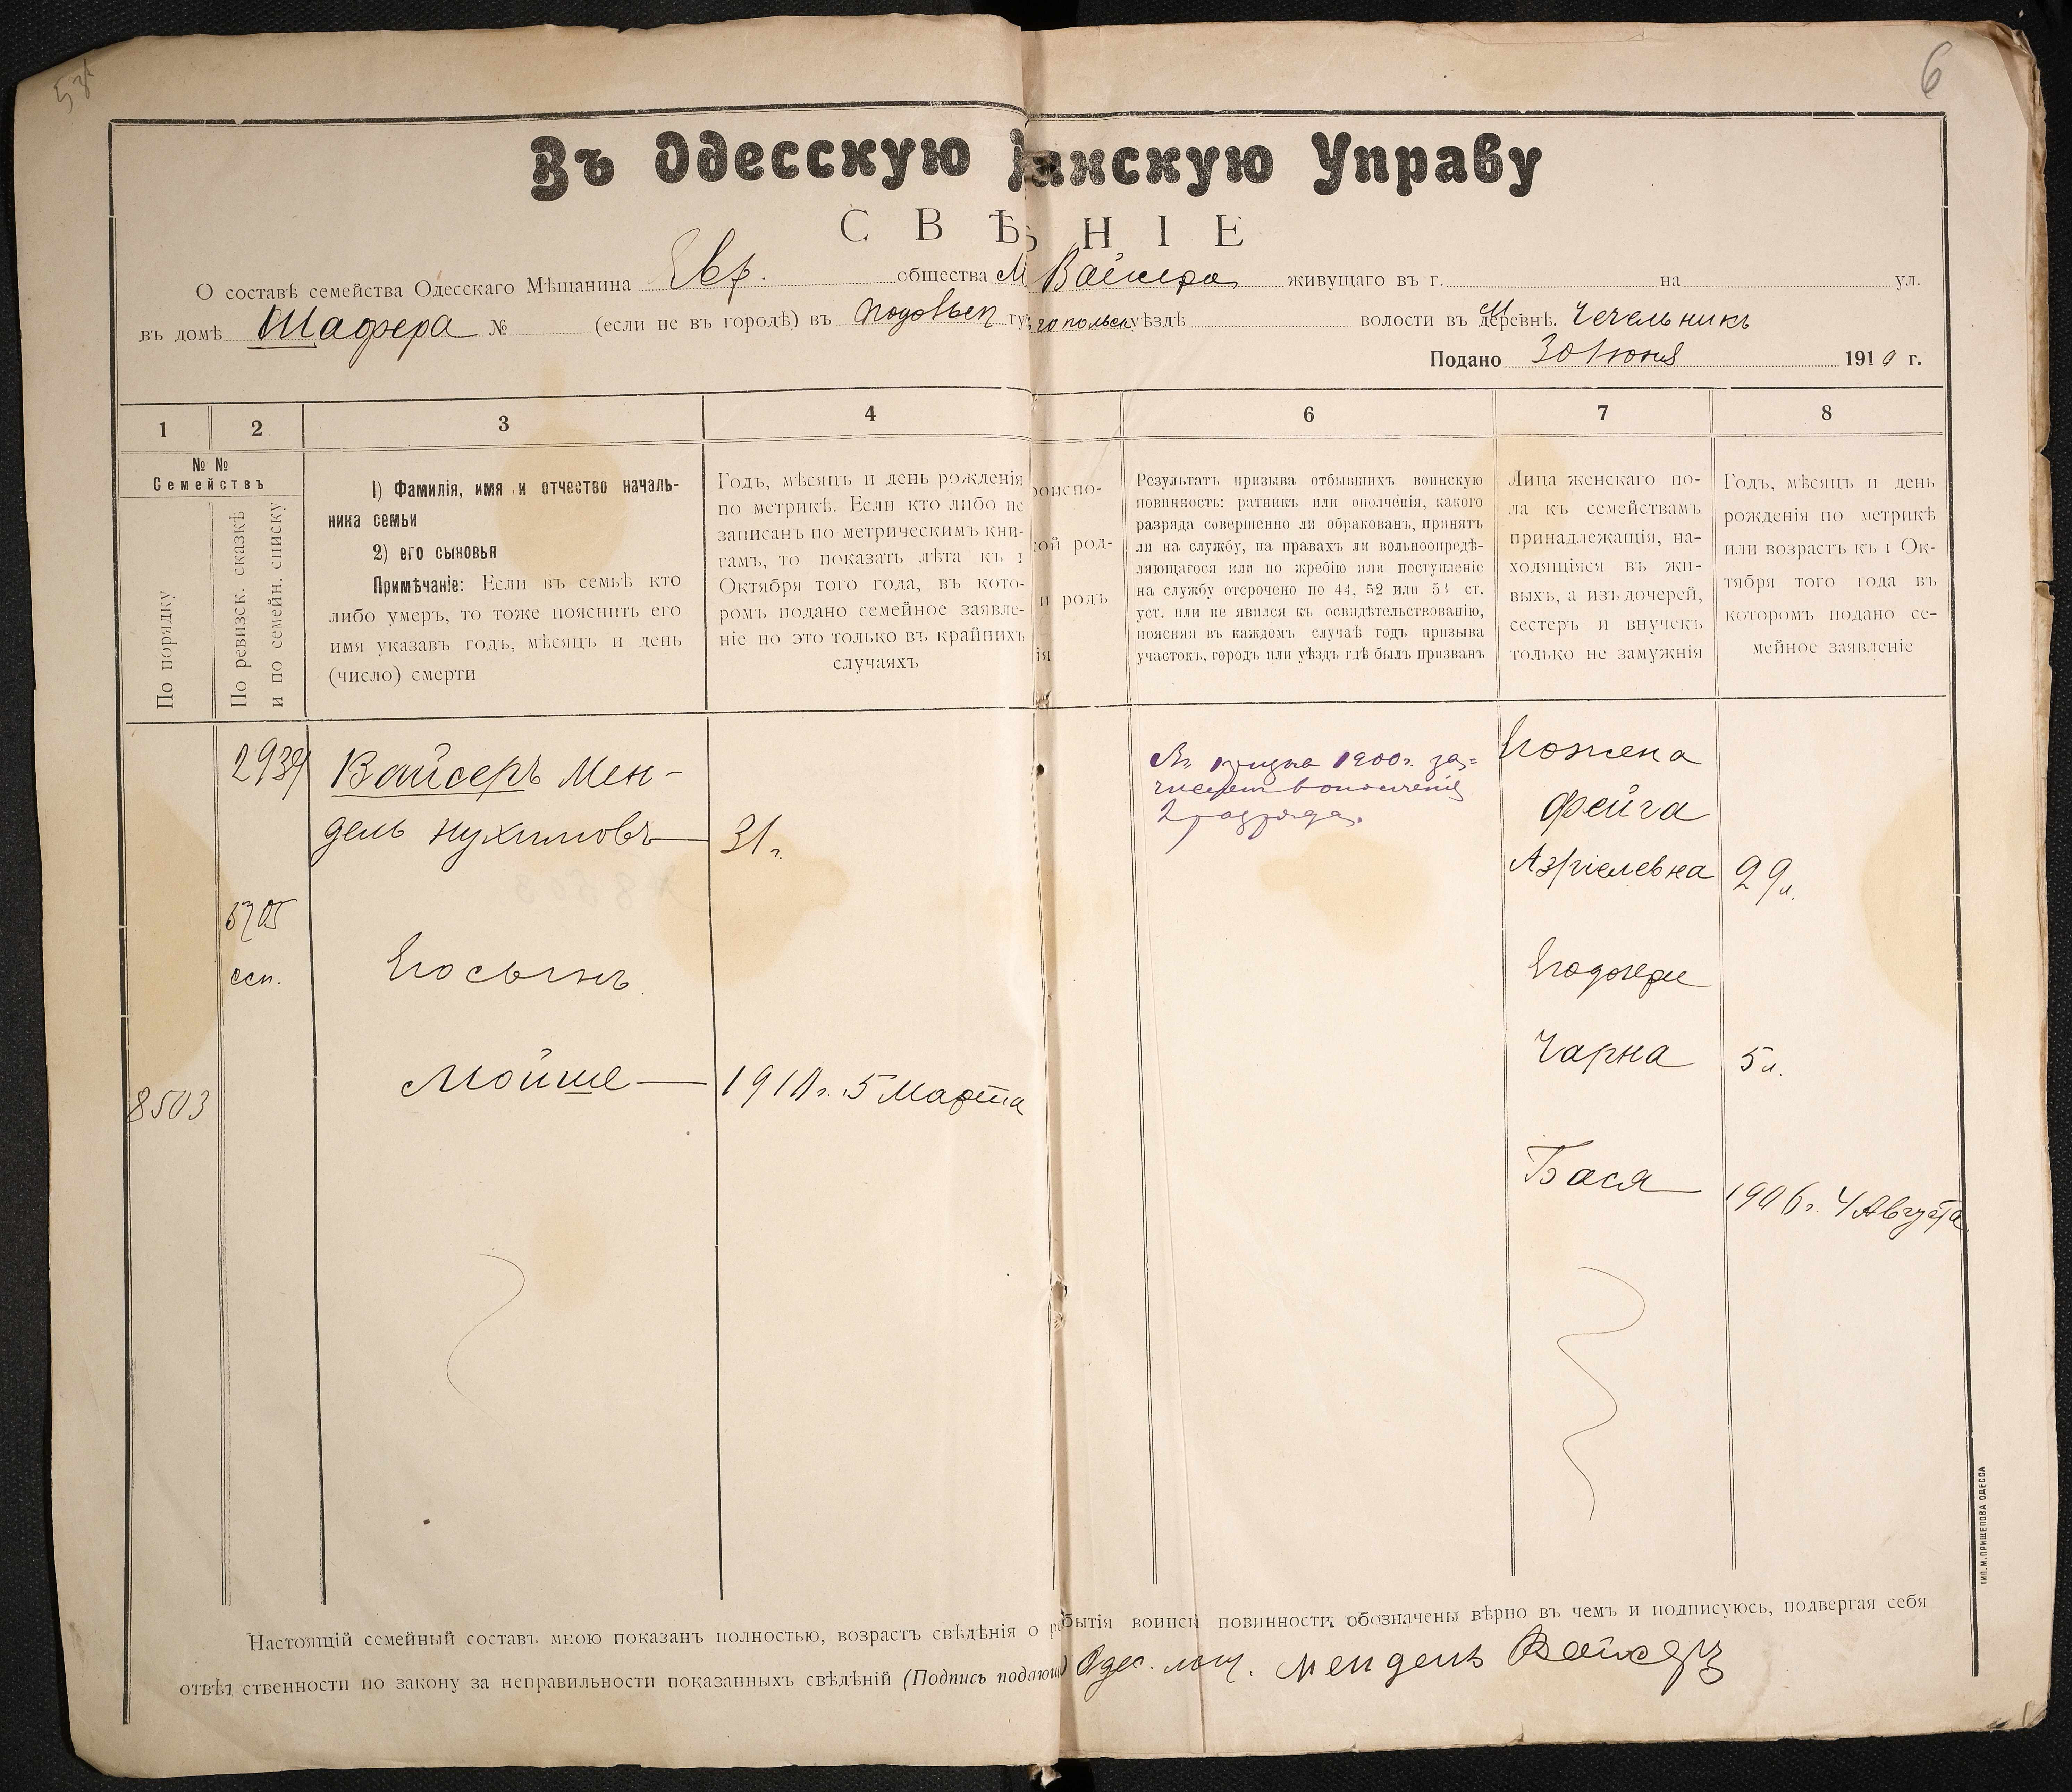 58
6
Въ Одесскую анскую Управу
СВѢ НІЕ
О составѣ семейства Одесскаго Мѣщанина Евр. общества М Вайсера живущаго въ г. на ул.
въ домѣ Шафера № (если не въ городѣ) въ Подольск гу гопольск уѣздѣ волости въ деревнѣ. М Чечельникъ
Подано 30 Іюня 1910 г.
1 2 3 4 6 7 8
№ №
Семействъ
По порядку
По ревизск. сказкѣ
и по семейн. списку
1) Фамилія, имя и отчество началь-
ника семьи
2) его сыновья
Примѣчаніе: Если въ семьѣ кто
либо умеръ, то тоже пояснить его
имя указавъ годъ, мѣсяцъ и день
(число) смерти
Годъ, мѣсяцъ и день рожденія
по метрикѣ. Если кто либо не
записанъ по метрическимъ кни-
гамъ, то показать лѣта къ 1
Октября того года, въ кото-
ромъ подано семейное заявле-
ніе но это только въ крайнихъ
случаяхъ
роиспо-
кой род-
и родъ
ія
Результатъ призыва отбывшихъ воинскую
повинность: ратникъ или ополченія, какого
разряда совершенно ли обракованъ, принятъ
ли на службу, на правахъ ли вольноопредѣ-
ляющагося или по жребію или поступленіе
на службу отсрочено по 44, 52 или 53 ст.
уст. или не явился къ освидѣтельствованію,
поясняя въ каждомъ случаѣ годъ призыва
участокъ, городъ или уѣздъ гдѣ былъ призванъ
Лица женскаго по-
ла къ семействамъ
принадлежащія, на-
ходящіяся въ жи-
выхъ, а изъ дочерей,
сестеръ и внучекъ
только не замужнія
Годъ, мѣсяцъ и день
рожденія по метрикѣ
или возрастъ къ 1 Ок-
тября того года въ
которомъ подано се-
мейное заявленіе
2939
Вайсеръ Мен-
дель Нухимовъ 31 г.
5705
ссп.
Его сынъ
Мойше 1910 г. 5 Марта
8503
Въ призывъ 1900 г. за=
численъ в ополченіе
2 разряда.
Его жена
Фейга
Азріелевна 29 л.
Его дочери
Чарна 5 л.
Бася 1906 г. 4 Августа
Настоящій семейный составъ мною показанъ полностью, возрастъ свѣдѣнія о бытія воинск повинности обозначены вѣрно въ чемъ и подписуюсь, подвергая себя
отвѣтственности по закону за неправильности показанныхъ свѣдѣній (Подпись подающ) Одес. мѣщ. Мендель Вайсеръ
ТИП. М. ПРИЩЕПОВА ОДЕССА